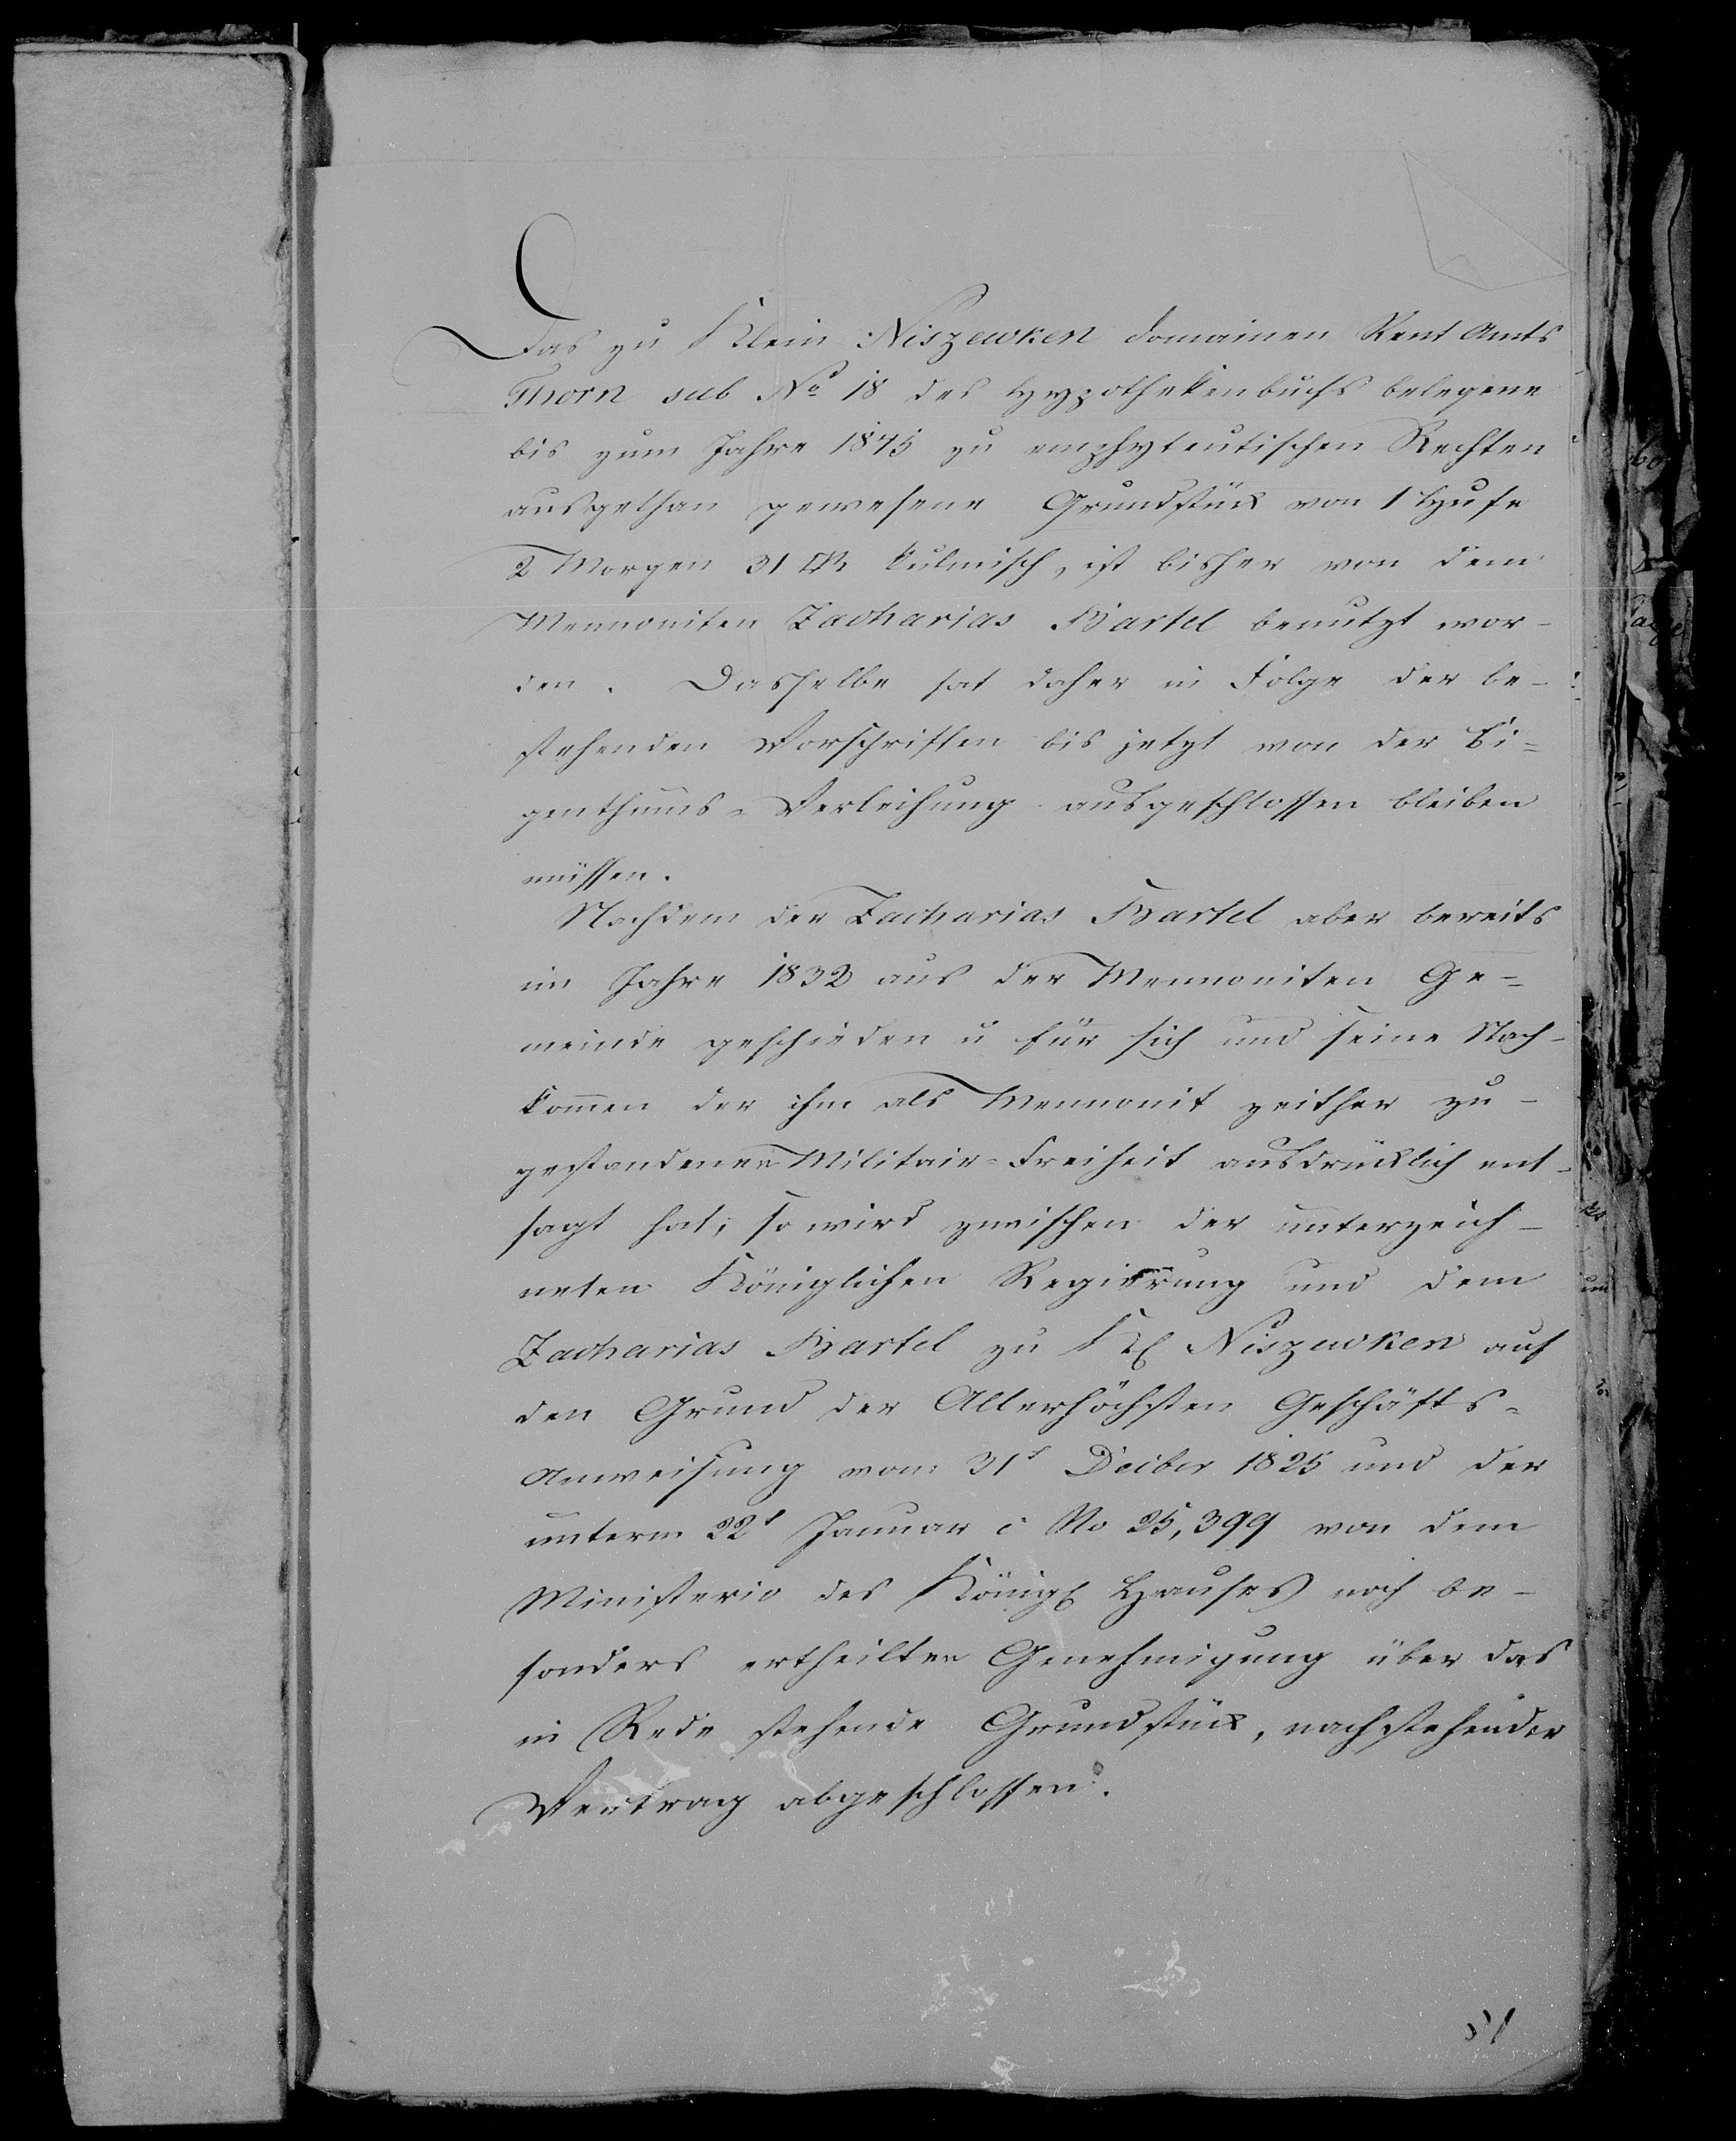 Das zu Klein Niszewken Domainen Rent Amts
Thorn sub No 18 des Hypothekenbuchs belegene
bis zum Jahre 1845 zu emphyteutischen Rechten
ausgethan gewesene Grundstück von 1 Hufe
2 Morgen 31 □R kulmisch, ist bisher von dem
Mennoniten Zacharias Bartel benutzt wor-
den. Dasselbe hat daher in Folge der be-
stehenden Vorschriften bis jetzt von der Ei=
genthums-Verleihung ausgeschlossen bleiben
müssen.
Nachdem der Zacharias Bartel aber bereits
im Jahre 1832 aus der Mennoniten Ge=
meinde geschieden u für sich und seine Nach-
kom̄en der ihm als Mennonit zeither zu-
gestandenen Militair=Freiheit ausdrücklich ent-
sagt hat, so wird zwischen der unterzeich-
neten Königlichen Regierung und dem
Zacharias Bartel zu Kl Niszewken auf
den Grund der Allerhöchsten Geschäfts-
Anweisung vom 31t Decibr 1825 und der
unterm 22t Januar c No 25,399 von dem
Ministerio des Königl Hauses noch be-
sonders ertheilten Genehmigung über das
in Rede stehende Grundstück, nachstehender
Vertrag abgeschlossen.